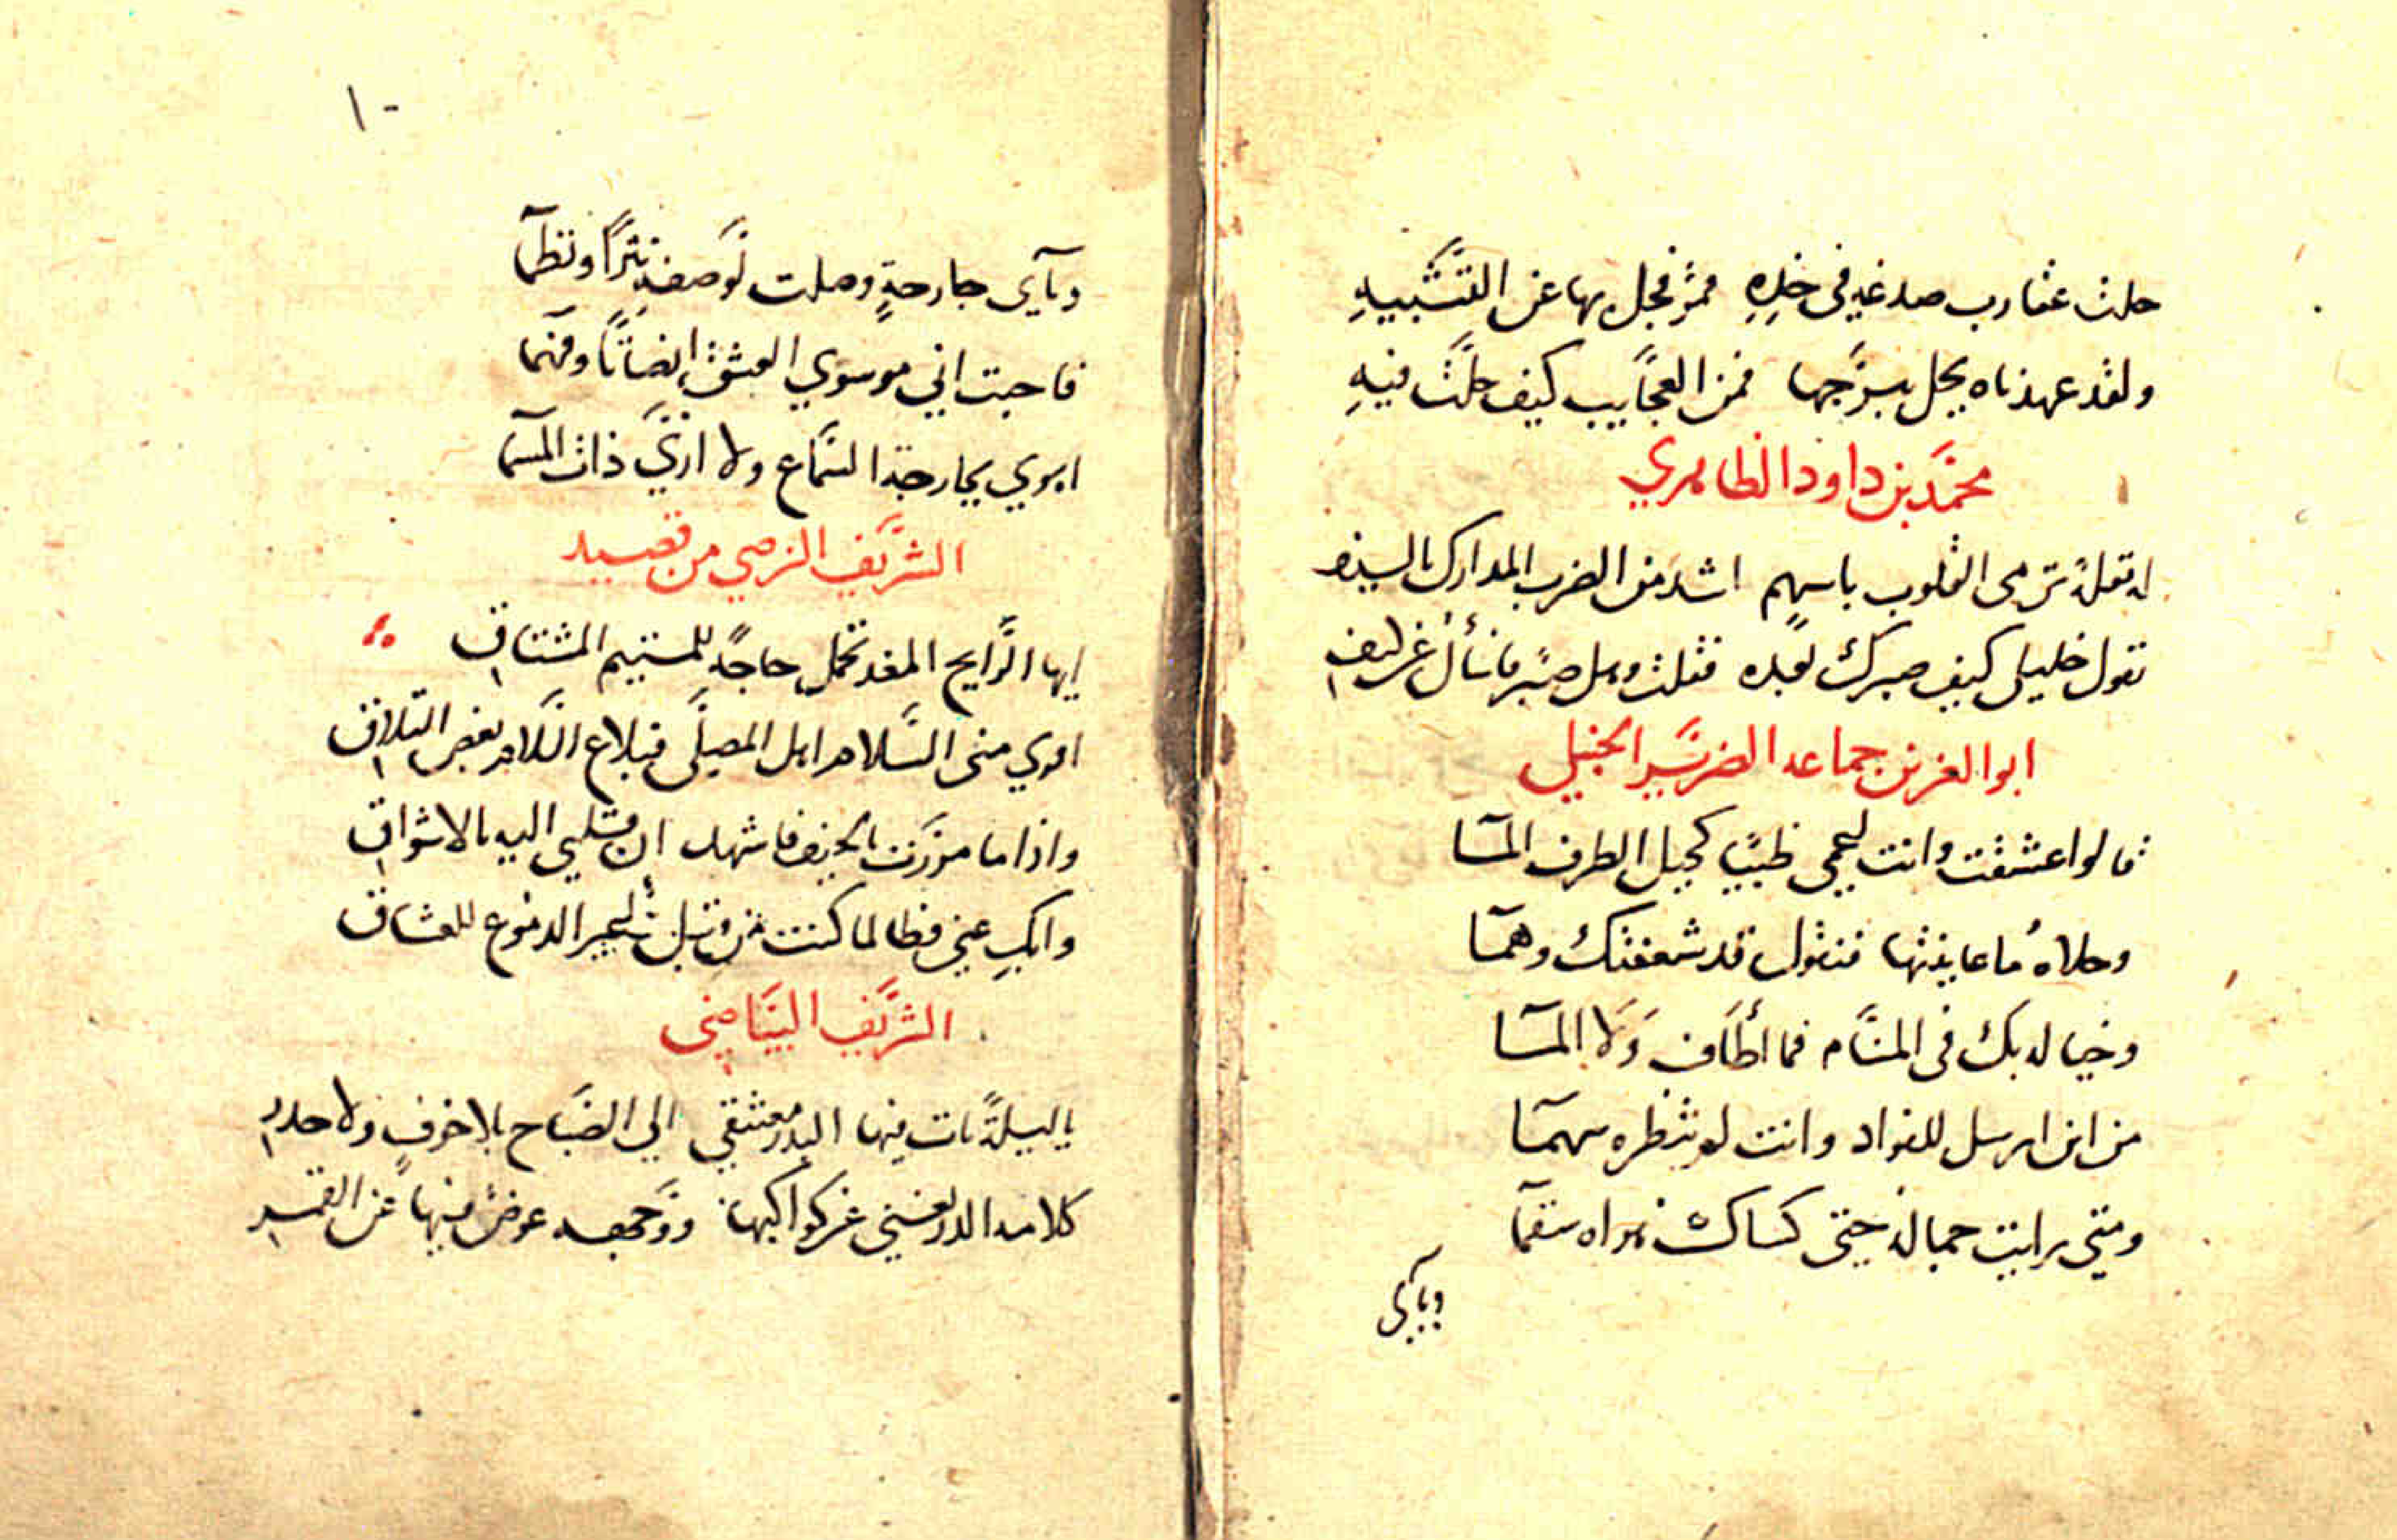 حلت عقارب صدغه في خده قمر فجل بها عن التشبيه
ولقد عهدناه يحل ببرجها فمن العجايب كيف حلت فيه
محمد بن داود الظاهري
له مقلة ترمي القلوب باسهم اشد من الضرب المدارك بالسيف
تقول خليلي كيف صبرك بعده فقلت وهل صبر فاسأل عن كيف
ابو العز بن جماعه الضرير الحنبلي
قالوا عشقت وانت اعمى ظبيا كحيل الطرف المى
وحلاه ما عاينتها فنقول قد شغفتك وهما
وخياله بك في المنام فما أطاف ولا ألما
من اين ارسل للفواد وانت لم تنظره سهما
ومتى رايت جماله حتى كساك هواه سقما
وبأي
١٠
وبأي جارحة وصلت لوصفه نثرا ونظما
فاجبت اني موسوي العشق انصاتا وفهما
اهوى بجارحة السماع ولا ارى ذات المسمى
الشريف الرضي من قصيد
ايها الرايح المغد تحمل حاجة للمتيم المشتاق
اقري مني السلام اهل المصلى فبلاغ السلام بعض التلاقي
واذا ما مررت بالخيف فاشهد ان قلبي اليه بالاشواق
وابك عني فطالما كنت من قبل اعير الدموع للعشاق
الشريف البياضي
يا ليلة بات فيها البدر معتنقي الى الصباح بلا خوف ولا حذر
كلامه الدر يغنيني عن كواكبها ووجهه عوض فيها عن القمر